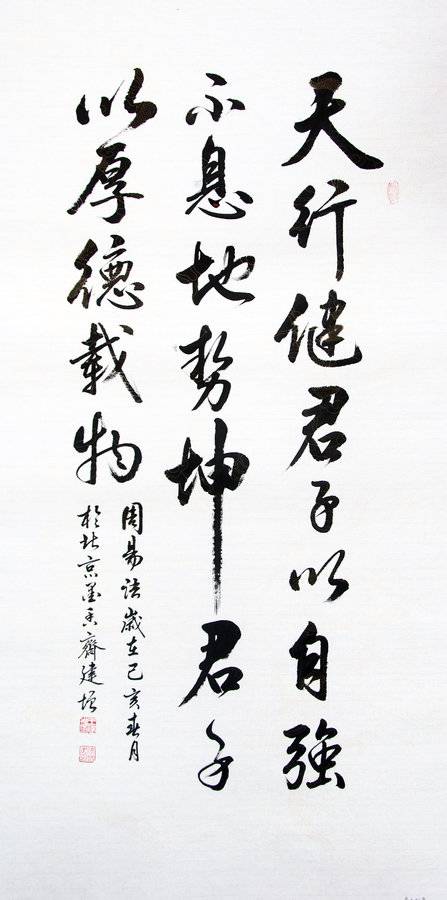 天行健君子以自強
不息地勢坤君子
以厚德載物
周易語歲在己亥春月
於北京墨香齋建增